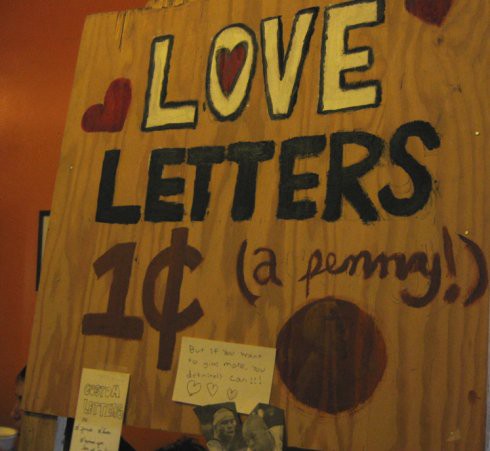 LOVE
LETTERS
1¢ (a penny!)
But if you want
to give more, you
definitely can!!!
CUSTOM
LETTERS